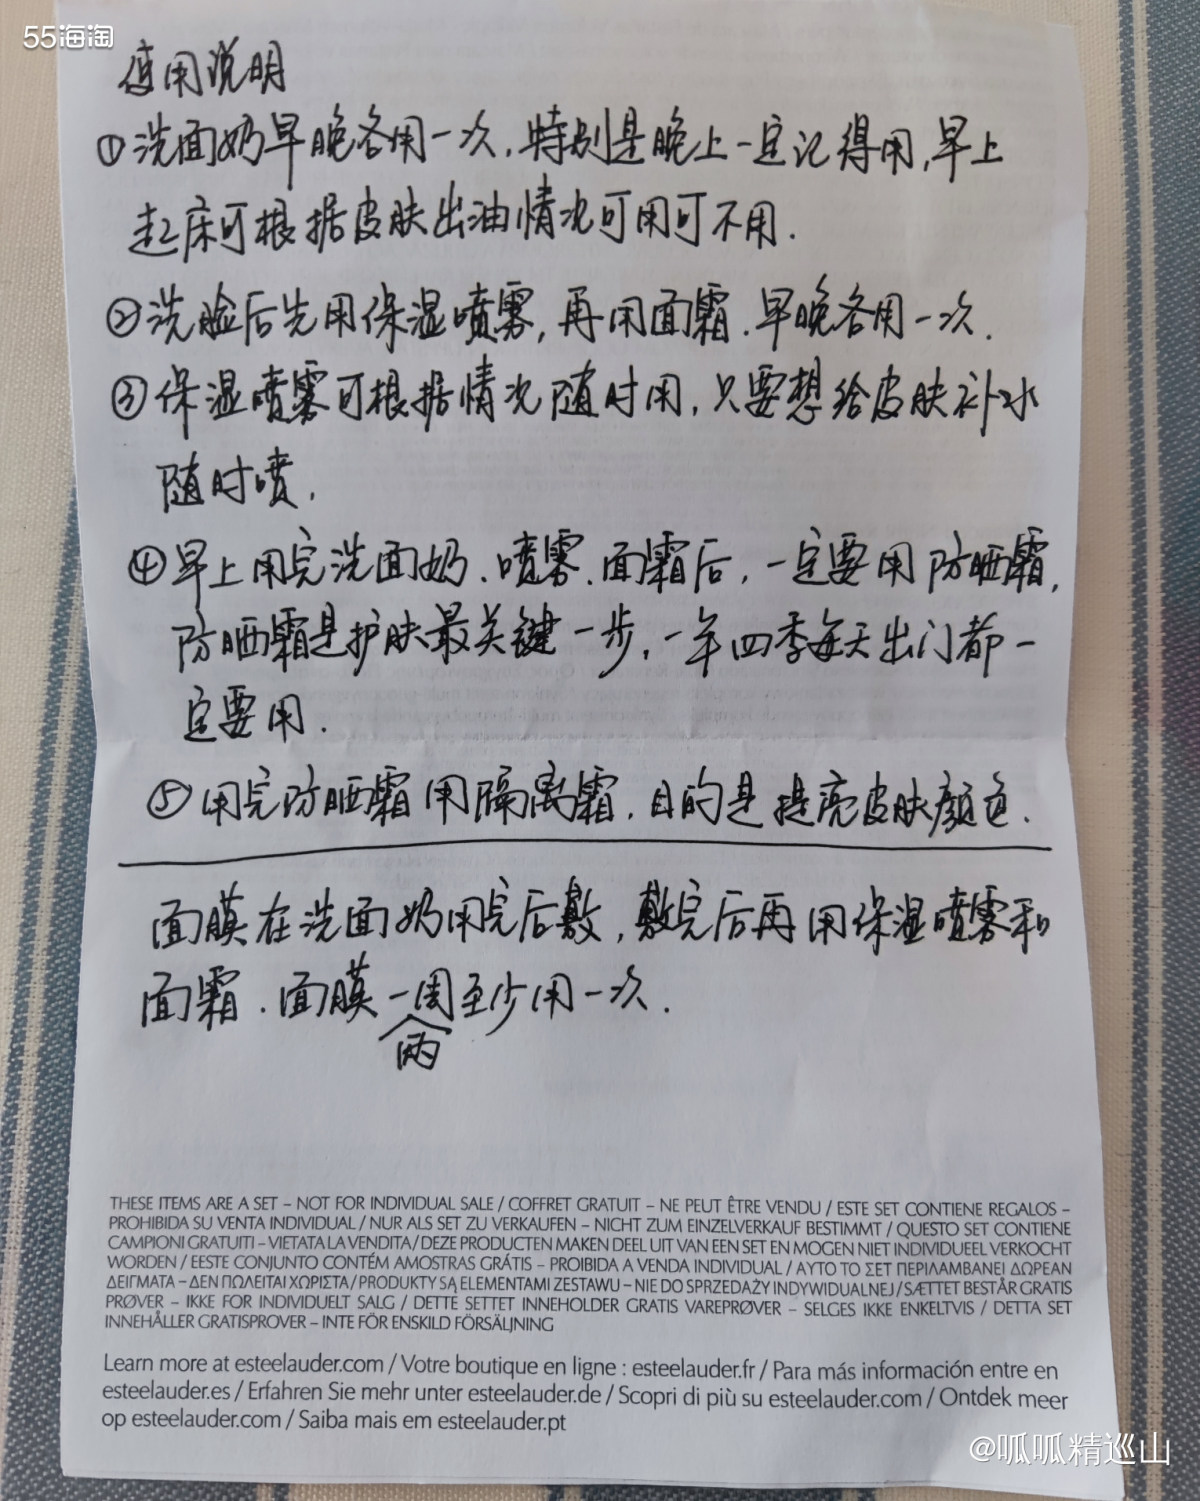 55海淘
使用说明
①洗面奶早晚各用一次,特别是晚上一定记得用,早上
起床可根据皮肤出油情况可用可不用.
②洗脸后先用保湿喷雾,再用面霜.早晚各用一次.
③保湿喷雾可根据情况随时用,只要想给皮肤补水
随时喷.
④早上用完洗面奶、喷雾、面霜后,一定要用防晒霜,
防晒霜是护肤最关键一步,一年四季每天出门都一
定要用.
⑤用完防晒霜用隔离霜,目的是提亮皮肤颜色.
面膜在洗面奶用完后敷,敷完后再用保湿喷雾和
面霜.面膜一周至少用一次.
两
THESE ITEMS ARE A SET – NOT FOR INDIVIDUAL SALE / COFFRET GRATUIT – NE PEUT ÊTRE VENDU / ESTE SET CONTIENE REGALOS –
PROHIBIDA SU VENTA INDIVIDUAL / NUR ALS SET ZU VERKAUFEN – NICHT ZUM EINZELVERKAUF BESTIMMT / QUESTO SET CONTIENE
CAMPIONI GRATUITI – VIETATA LA VENDITA / DEZE PRODUCTEN MAKEN DEEL UIT VAN EEN SET EN MOGEN NIET INDIVIDUEEL VERKOCHT
WORDEN / EESTE CONJUNTO CONTÉM AMOSTRAS GRÁTIS – PROIBIDA A VENDA INDIVIDUAL / ΑΥΤΟ ΤΟ ΣΕΤ ΠΕΡΙΛΑΜΒΑΝΕΙ ΔΩΡΕΑΝ
ΔΕΙΓΜΑΤΑ – ΔΕΝ ΠΩΛΕΙΤΑΙ ΧΩΡΙΣΤΑ / PRODUKTY SĄ ELEMENTAMI ZESTAWU – NIE DO SPRZEDAŻY INDYWIDUALNEJ / SÆTTET BESTÅR GRATIS
PRØVER – IKKE FOR INDIVIDUELT SALG / DETTE SETTET INNEHOLDER GRATIS VAREPRØVER – SELGES IKKE ENKELTVIS / DETTA SET
INNEHÅLLER GRATISPROVER – INTE FÖR ENSKILD FÖRSÄLJNING
Learn more at esteelauder.com / Votre boutique en ligne : esteelauder.fr / Para más información entre en
esteelauder.es / Erfahren Sie mehr unter esteelauder.de / Scopri di più su esteelauder.com / Ontdek meer
op esteelauder.com / Saiba mais em esteelauder.pt
@呱呱精巡山